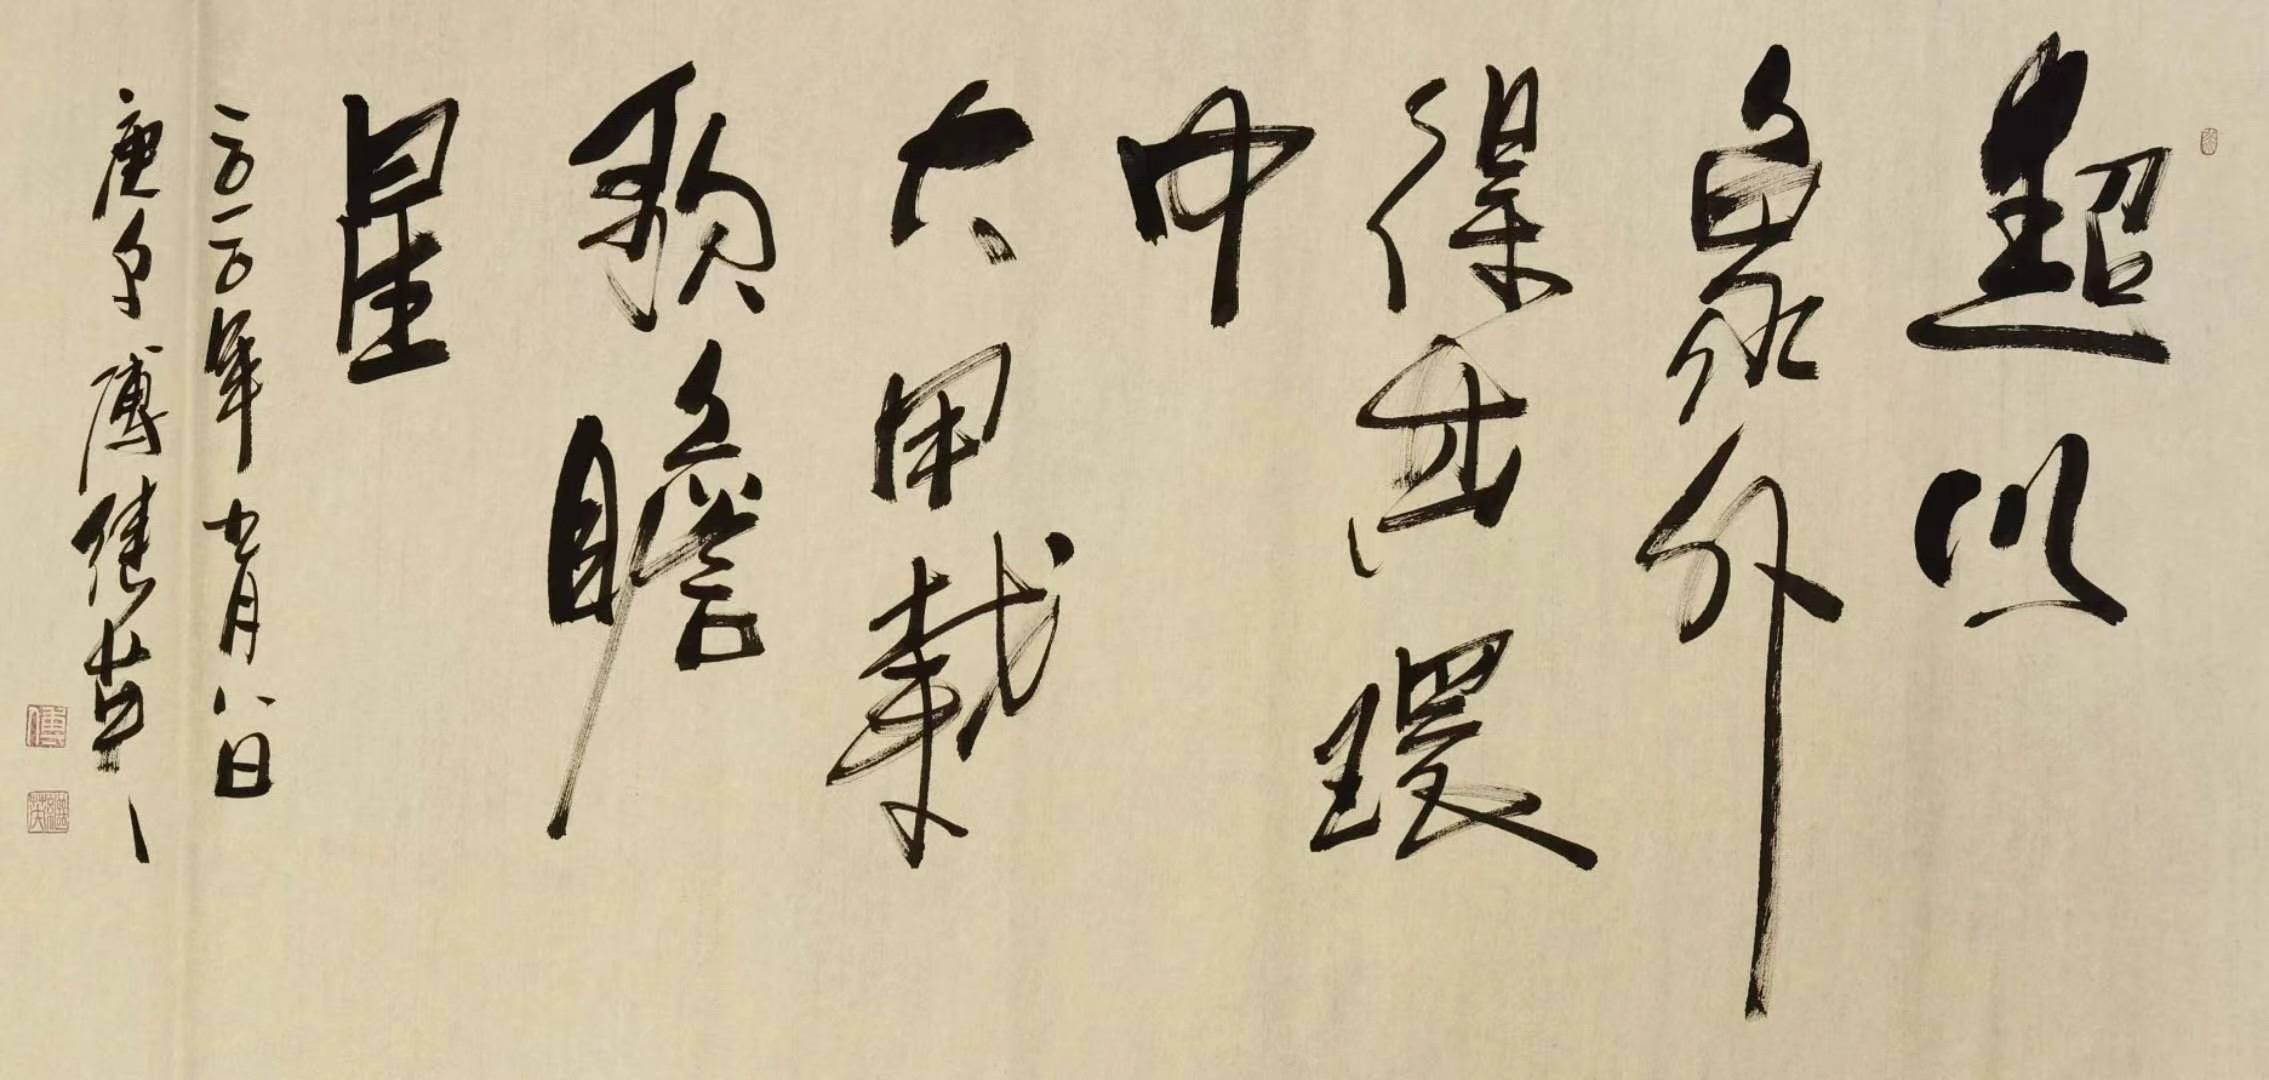 超以
象外
得其環
中
大用載
歌瞻
星
二〇二〇年九月八日
庚子傅继英